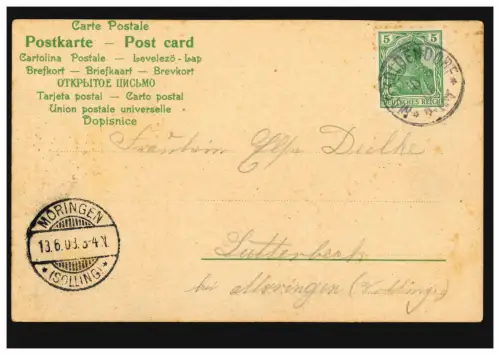 Carte Postale
Postkarte – Post card
Cartolina Postale – Levelező-Lap
Brefkort – Briefkaart – Brevkort
ОТКРЫТОЕ ПИСЬМО
Tarjeta postal – Carto postal
Union postale universelle
Dopisnice
5 5
DEUTSCHES REICH
Fräulein Elsa
MORINGEN
13.6.03. 3-4 N
* (SOLLING) *
Lutterbeck
bei Moringen (Solling)